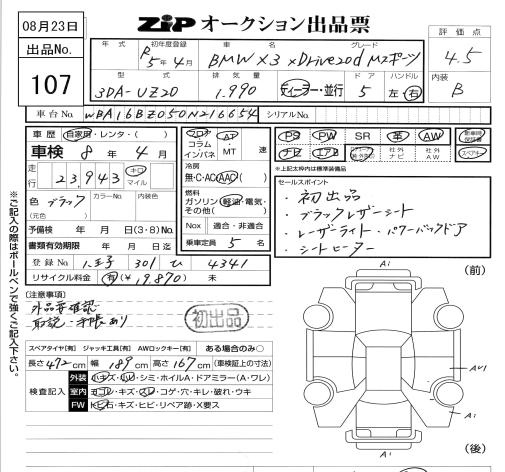 08月23日
ZIP オークション出品票
出品No.
107
評価点
4.5
内装
B
年式 初年度登録 車名 グレード
R5年4月 BMW X3 xDrive20d Mスポーツ
型式 排気量 ドア ハンドル
3DA-UZ20 1.990 ディーラー・並行 5 左・右
車台No. WBA16BZ050N216654 シリアルNo.
車歴 自家用・レンタ・( )
車検 8年4月
走行 23,943 キロ マイル
色 ブラック カラーNo. 内装色
(元色)
予備検 年 月 日(3・8)No.
書類有効期限 年 月 日迄
登録No. 301 ひ 4341
リサイクル料金 有(¥19,870) 未
フロア コラム インパネ
AT・MT 速
冷房
無・C・AC・AAC( )
燃料
ガソリン・軽油・電気・その他( )
Nox 適合・非適合
乗車定員 5 名
PS PW SR 革 AW
ナビ エアB 社外ナビ 社外AW
新車時保証書
スペアキー
※上記太枠内は標準装備品
セールスポイント
・初出品
・ブラックレザーシート
・レーザーライト・パワーバックドア
・シートヒーター
[注意事項]
外品要確認
取説・手帳あり
初出品
スペアタイヤ[有] ジャッキ工具[有] AWロックキー[有] ある場合のみ○
長さ472cm 幅189cm 高さ167cm (車検証上の寸法)
検査記入
外装 小キズ・凹・シミ・ホイルA・ドアミラー(A・ワレ)
室内 ヨゴレ・キズ・スレ・コゲ・穴・キレ・破れ・ウキ
FW トビ石・キズ・ヒビ・リペア跡・X要ス
(前)
Ai
AU1
Ai
Ai
(後)
※ご記入の際はボールペンで強くご記入下さい。